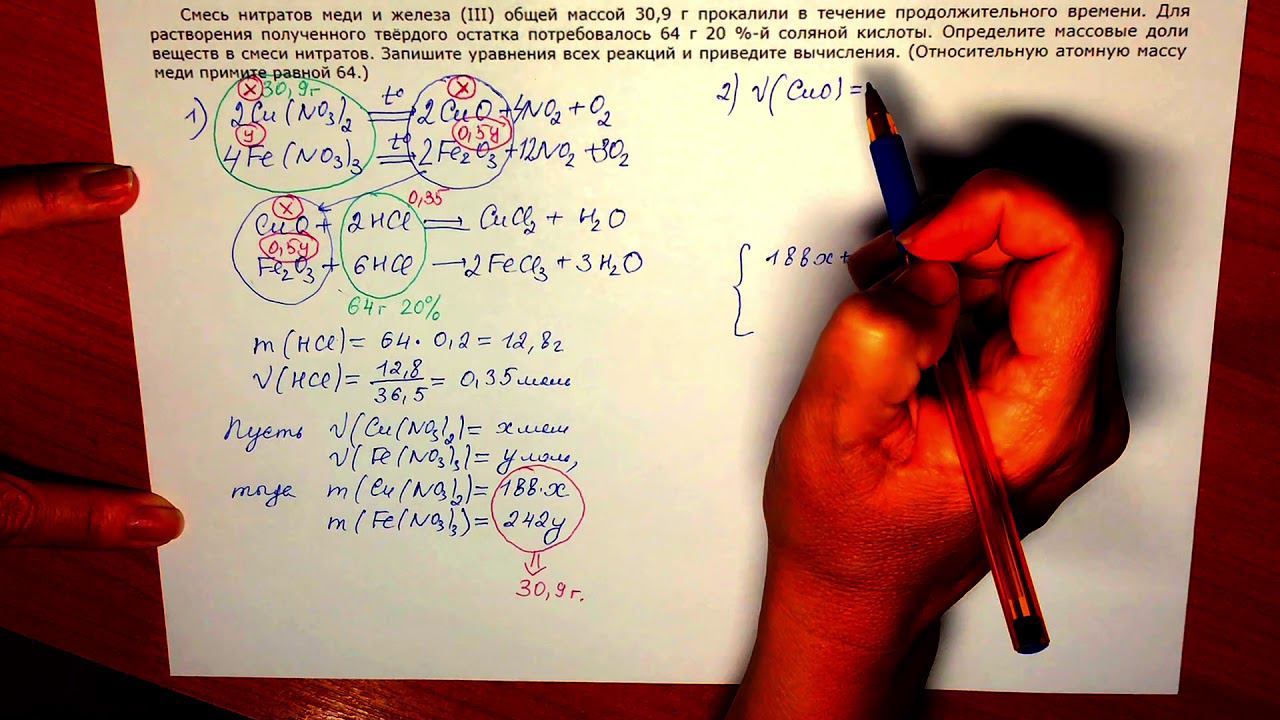 Смесь нитратов меди и железа (III) общей массой 30,9 г прокалили в течение продолжительного времени. Для
растворения полученного твёрдого остатка потребовалось 64 г 20 %-й соляной кислоты. Определите массовые доли
веществ в смеси нитратов. Запишите уравнения всех реакций и приведите вычисления. (Относительную атомную массу
меди примите равной 64.)
x 30,9г x
1) 2Cu(NO₃)₂ t° = 2CuO + 4NO₂ + O₂
y 0,5y
4Fe(NO₃)₃ t° = 2Fe₂O₃ + 12NO₂ + 3O₂
x 0,35
CuO + 2HCl = CuCl₂ + H₂O
0,5y
Fe₂O₃ + 6HCl → 2FeCl₃ + 3H₂O
64г 20%
m(HCl) = 64 · 0,2 = 12,8г
ν(HCl) = 12,8/36,5 = 0,35 моль
Пусть ν(Cu(NO₃)₂) = x моль
ν(Fe(NO₃)₃) = y моль,
тогда m(Cu(NO₃)₂) = 188·x
m(Fe(NO₃)₃) = 242y
30,9г.
2) ν(CuO) =
{ 188x +